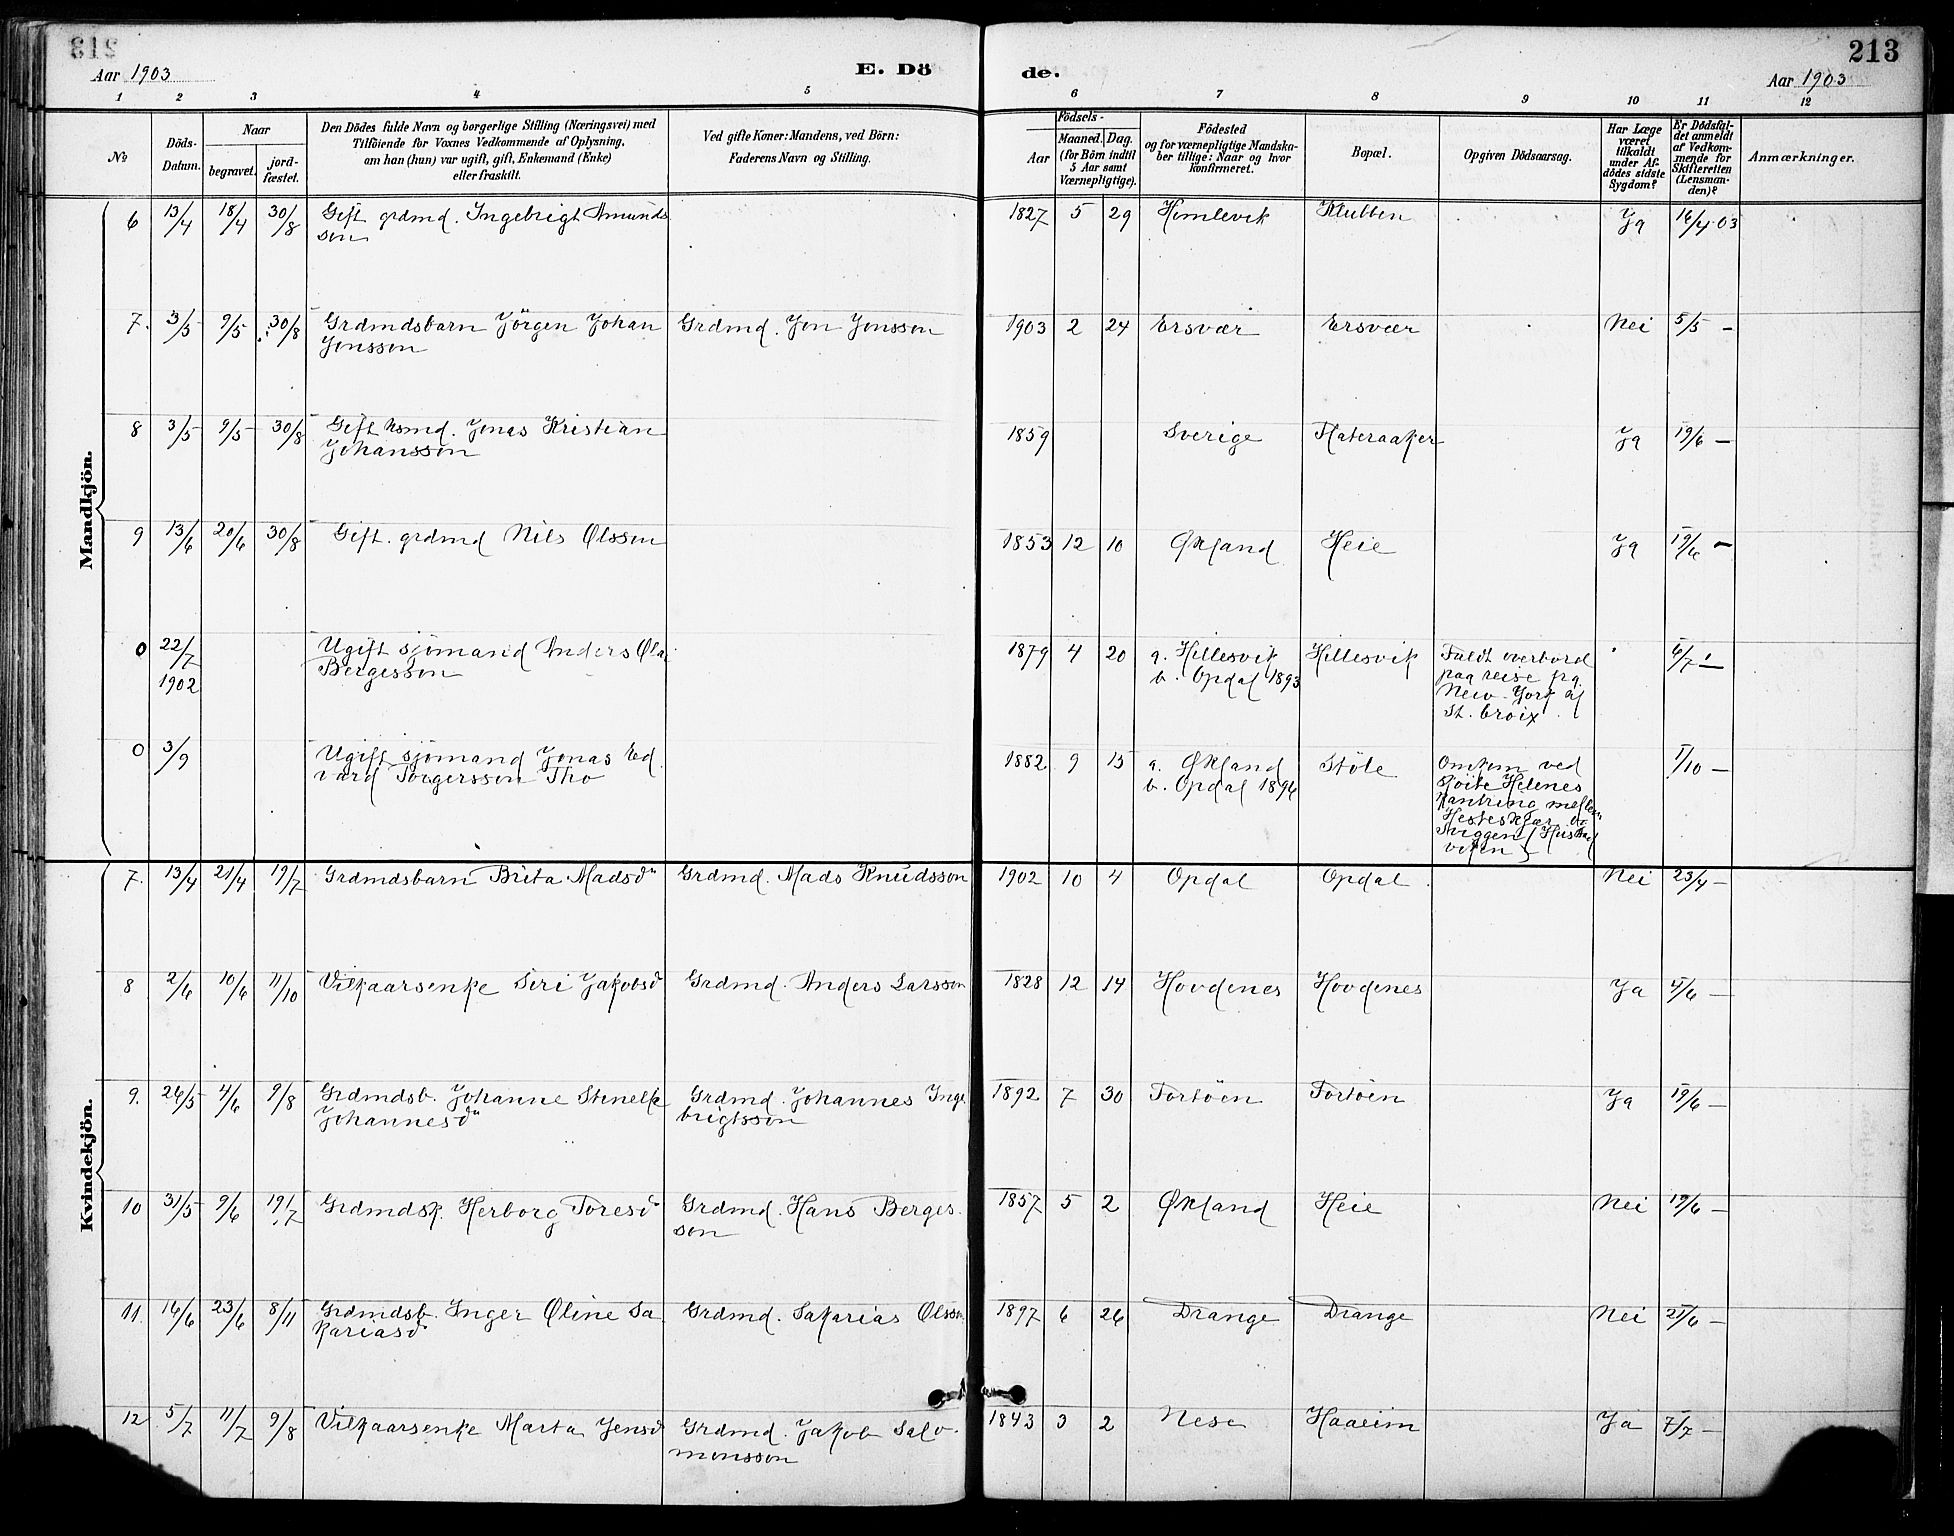 213
Aar 1903
E. Dö
de.
213
Aar 1903
1 2 3 4 5 6 7 8 9 10 11 12
No
Döds-
Datum.
Naar
begravet.
jord-
fæstet.
Den Dödes fulde Navn og borgerlige Stilling (Næringsvei) med
Tilföiende for Voxnes Vedkommende af Oplysning,
om han (hun) var ugift, gift, Enkemand (Enke)
eller fraskilt.
Ved gifte Koner: Mandens, ved Börn:
Faderens Navn og Stilling.
Födsels-
Aar
Maaned.
Dag.
(for Börn indtil
5 Aar samt
Værnepligtige).
Födested
og for værnepligtige Mandska-
ber tillige: Naar og hvor
konfirmeret.
Bopæl.
Opgiven Dödsaarsag.
Har Læge
været
tilkaldt
under Af-
dödes sidste
Sygdom?
Er Dödsfal-
det anmeldt
af Vedkom-
mende for
Skifteretten
(Lensman-
den)?
Anmærkninger.
Mandkjön.
6 13/4 18/4 30/8 Gift grdmd. Ingebrigt Amunds 1827 5 29 Hemlevik Klubben Ja 16/4 03
son
7. 3/5 9/5 30/8 Grdmdsbarn Jörgen Johan Grdmd. Jon Jonsson 1903 2 24 Ersvær Ersvær Nei 5/5 –
Jonsson
8 3/5 9/5 30/8 Gift hsmd. Jonas Kristian 1859 Sverige Flateraaker Ja 19/6 –
Johansson
9 13/6 20/6 30/8 Gift. grdmd Nils Olsson 1853 12 10 Økland Heie Ja 19/6 –
0 22/7 Ugift sjömand Anders Ola 1879 4 20 a. Hillesvik Hillesvik Faldt overbord 6/7 –
1902 Bergesson b. Opdal 1893 paa reise fra
New-York til
St. Croix.
0 3/9 Ugift sjömand Jonas Ed 1882 9 15 a. Økland Stöle Omkom ved 1/10 –
vard Torgersson Tho b. Opdal 1896 Sköite Helenes
Kantring mellem
Hesteskjær og
(Hustad
viken)
Kvindekjön.
7. 13/4 21/4 19/7 Grdmdsbarn Brita Madsdr Grdmd. Mads Knudsson 1902 10 4 Opdal Opdal Nei 23/4 –
8 2/6 10/6 11/10 Vilkaarsenke Siri Jakobsd Grdmd. Anders Larsson 1828 12 14 Hovdenes Hovdenes Ja 4/6 –
9. 26/5 4/6 9/8 Grdmdsb. Johanne Stinelle Grdmd. Johannes Inge 1892 7 30 Tortöen Tortöen Ja 19/6 –
Johannesdr brigtsson
10 31/5 9/6 19/7 Grdmdsk. Herborg Toresd Grdmd. Hans Berges 1857 5 2 Økland Heie Nei 19/6 –
son
11. 16/6 23/6 8/11 Grdmdsb. Inger Oline Sa Grdmd. Sakarias Olsson 1897 6 26 Drange Drange Nei 25/6 –
kariasd
12 5/7 11/7 9/8 Vilkaarsenke Marta Jensd Grdmd. Jakob Salo 1843 3 2 Nese Haaeim Ja 7/7 –
monsson